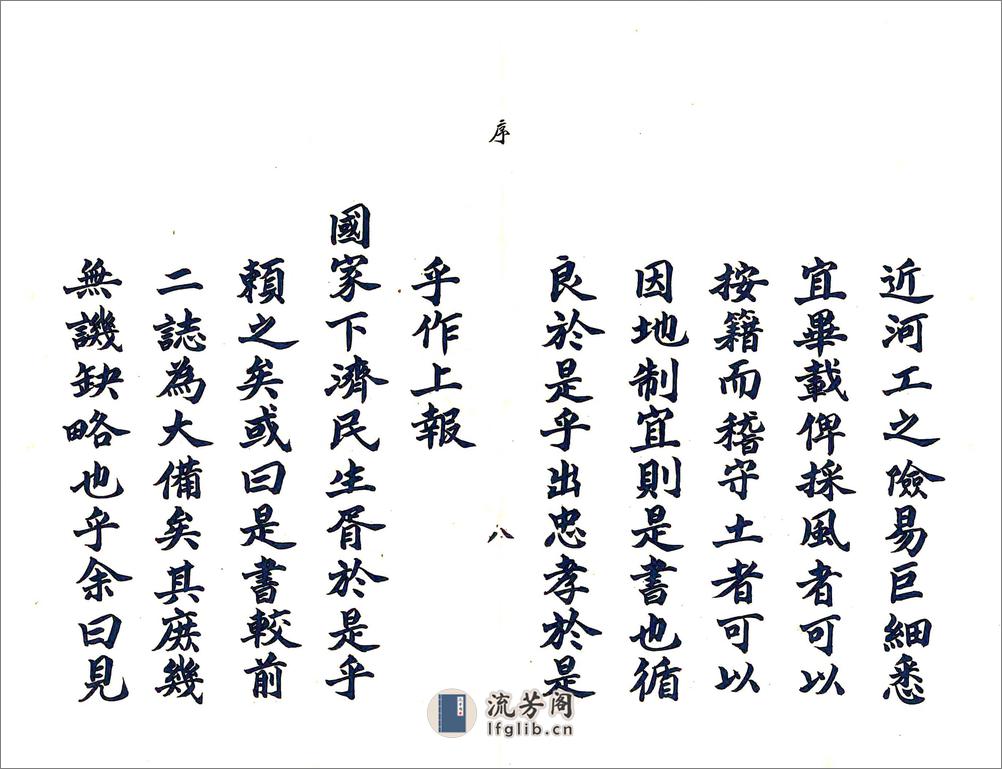 近河工之險易巨細悉
宜畢載俾採風者可以
按籍而稽守土者可以
因地制宜則是書也循
良於是乎出忠孝於是
序
八
乎作上報
國家下濟民生胥於是乎
頼之矣或曰是書較前
二誌為大備矣其庶幾
無譏缺略也乎余曰見
流芳阁
lfglib.cn